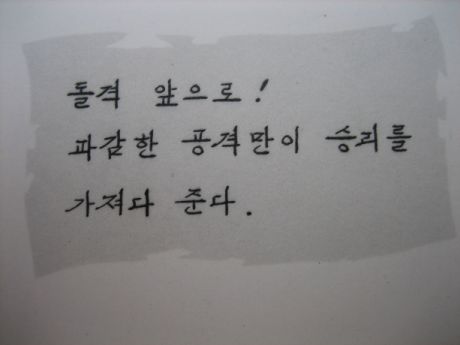 돌격 앞으로!
과감한 공격만이 승리를
가져다 준다.